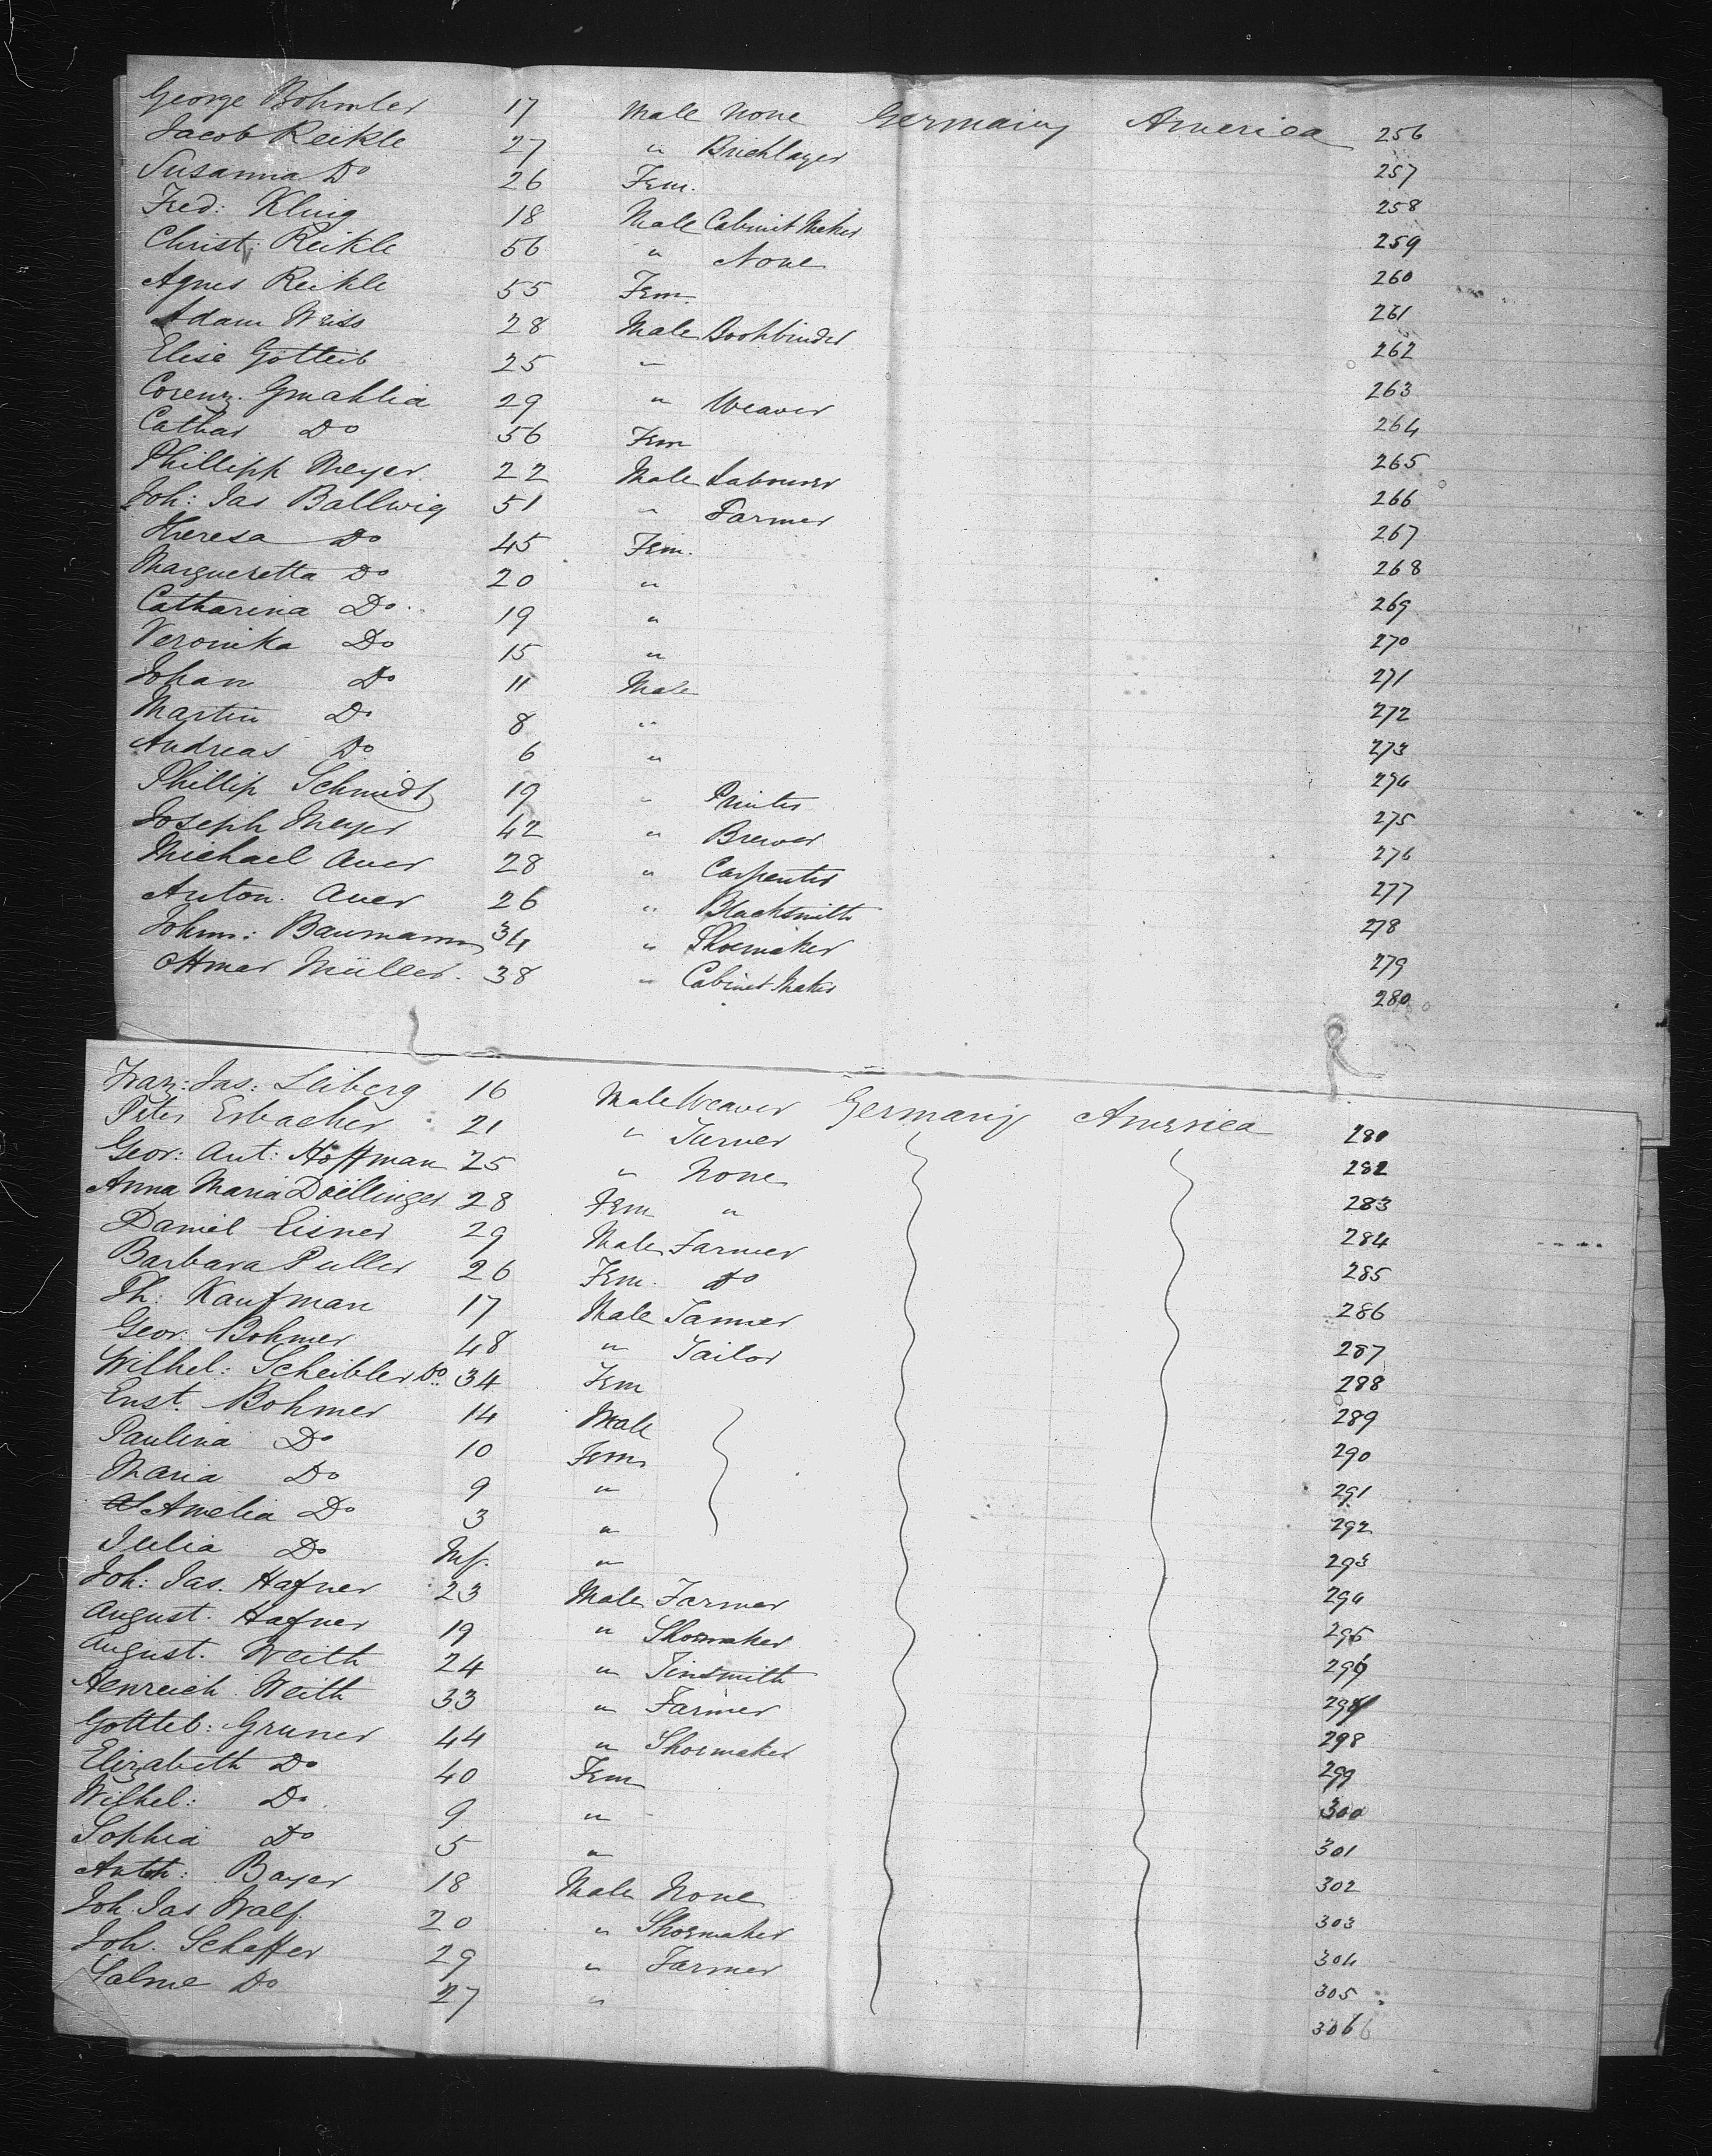 George Bohmler 17 Male None Germany America 256
Jacob Reikle 27 " Bricklayer 257
Susanna Do 26 Fem. 258
Fred: Kluig 18 Male Cabinet Maker 259
Christ: Reikle 56 " None 260
Agnes Reikle 55 Fem. 261
Adam Weiss 28 Male Bookbinder 262
Elise Gotteib 25 " 263
Corenz. Gmahlia 29 " Weaver 264
Cathar Do 56 Fem 265
Phillipp Meyer 22 Male Labourer 266
Joh: Jas Ballwig 51 " Farmer 267
Theresa Do 45 Fem. 268
Margueretta Do 20 " 269
Catharina Do. 19 " 270
Veronika Do 15 " 271
Johan Do 11 Male 272
Martin Do 8 " 273
Andreas Do 6 " 274
Phillip Schmidt 19 " Printer 275
Joseph Meyer 42 " Brewer 276
Michael Auer 28 " Carpenter 277
Anton. Auer 26 " Blacksmith 278
Johnn: Baumann 34 " Shoemaker 279
Ottmar Müller. 38 " Cabinet Maker 280
Franz: Jas: Leiberg 16 Male Weaver Germany America 280
Peter Erbacher 21 " Turner 282
Geor: Ant: Hoffman 25 " None 283
Anna Maria Doëllinger 28 Fem " 284
Daniel Eisner 29 Male Farmer 285
Barbara Puller 26 Fem. Do 286
Ph: Kaufman 17 Male Tanner 287
Geor. Bohmer 48 " Tailor 288
Wilhel: Scheibler Do 34 Fem 289
Enst. Bohmer 14 Male 290
Paulina Do 10 Fem 291
Maria Do 9 " 292
Amelia Do 3 " 293
Julia Do Inf. " 294
Joh: Jas. Hafner 23 Male Farmer 295
August. Hafner 19 " Shoemaker 296
August. Weith 24 " Tinsmith 298
Henreich Weith 33 " Farmer 298
Gottleb: Gruner 44 " Shoemaker 299
Elizabeth Do 40 Fem 300
Wilhel: Do 9 " 301
Sophia Do 5 " 302
Anth: Bayer 18 Male None 303
Joh Jas Walf. 20 " Shoemaker 304
Joh. Schaffer 29 " Farmer 305
Salme Do 27 " 306